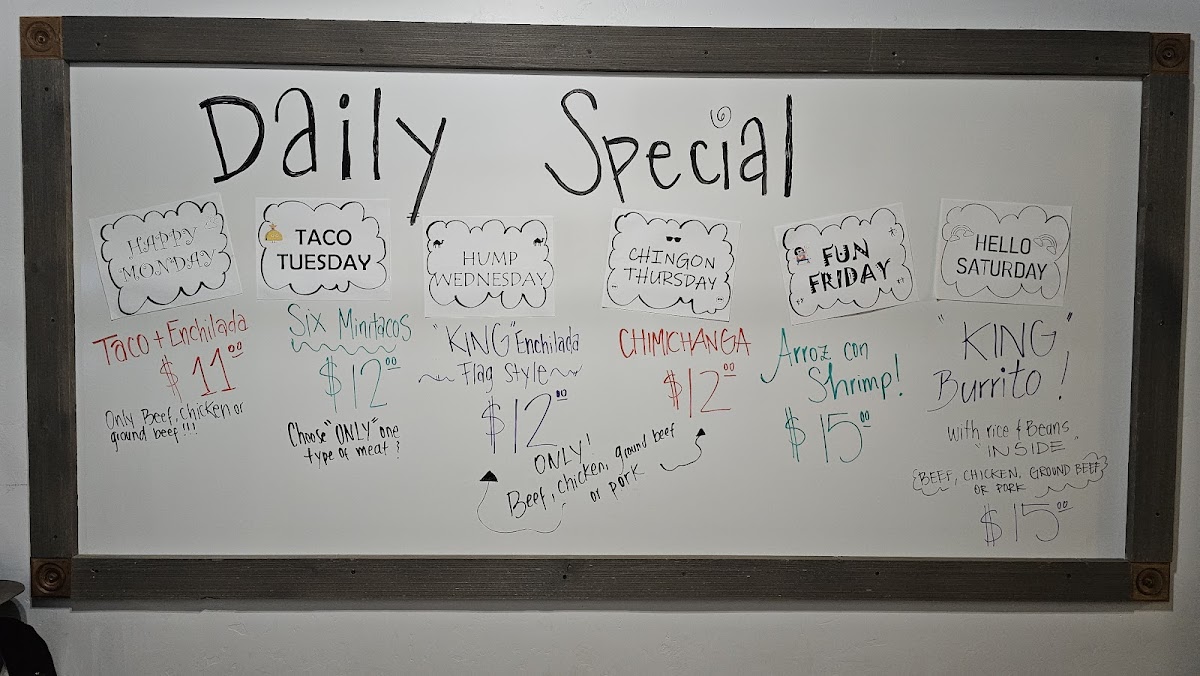 Daily Special
HAPPY
MONDAY
Taco + Enchilada
$11.00
Only Beef, chicken or
ground beef!!!
TACO
TUESDAY
Six Minitacos
$12.00
Choose "ONLY" one
type of meat!
HUMP
WEDNESDAY
"KING" Enchilada
~Flag Style~
$12.00
ONLY!
Beef, chicken, ground beef
or pork
CHINGON
THURSDAY
CHIMICHANGA
$12.00
FUN
FRIDAY
Arroz con
Shrimp!
$15.00
HELLO
SATURDAY
"KING"
Burrito!
with rice & Beans
"INSIDE"
BEEF, CHICKEN, GROUND BEEF
OR PORK
$15.00